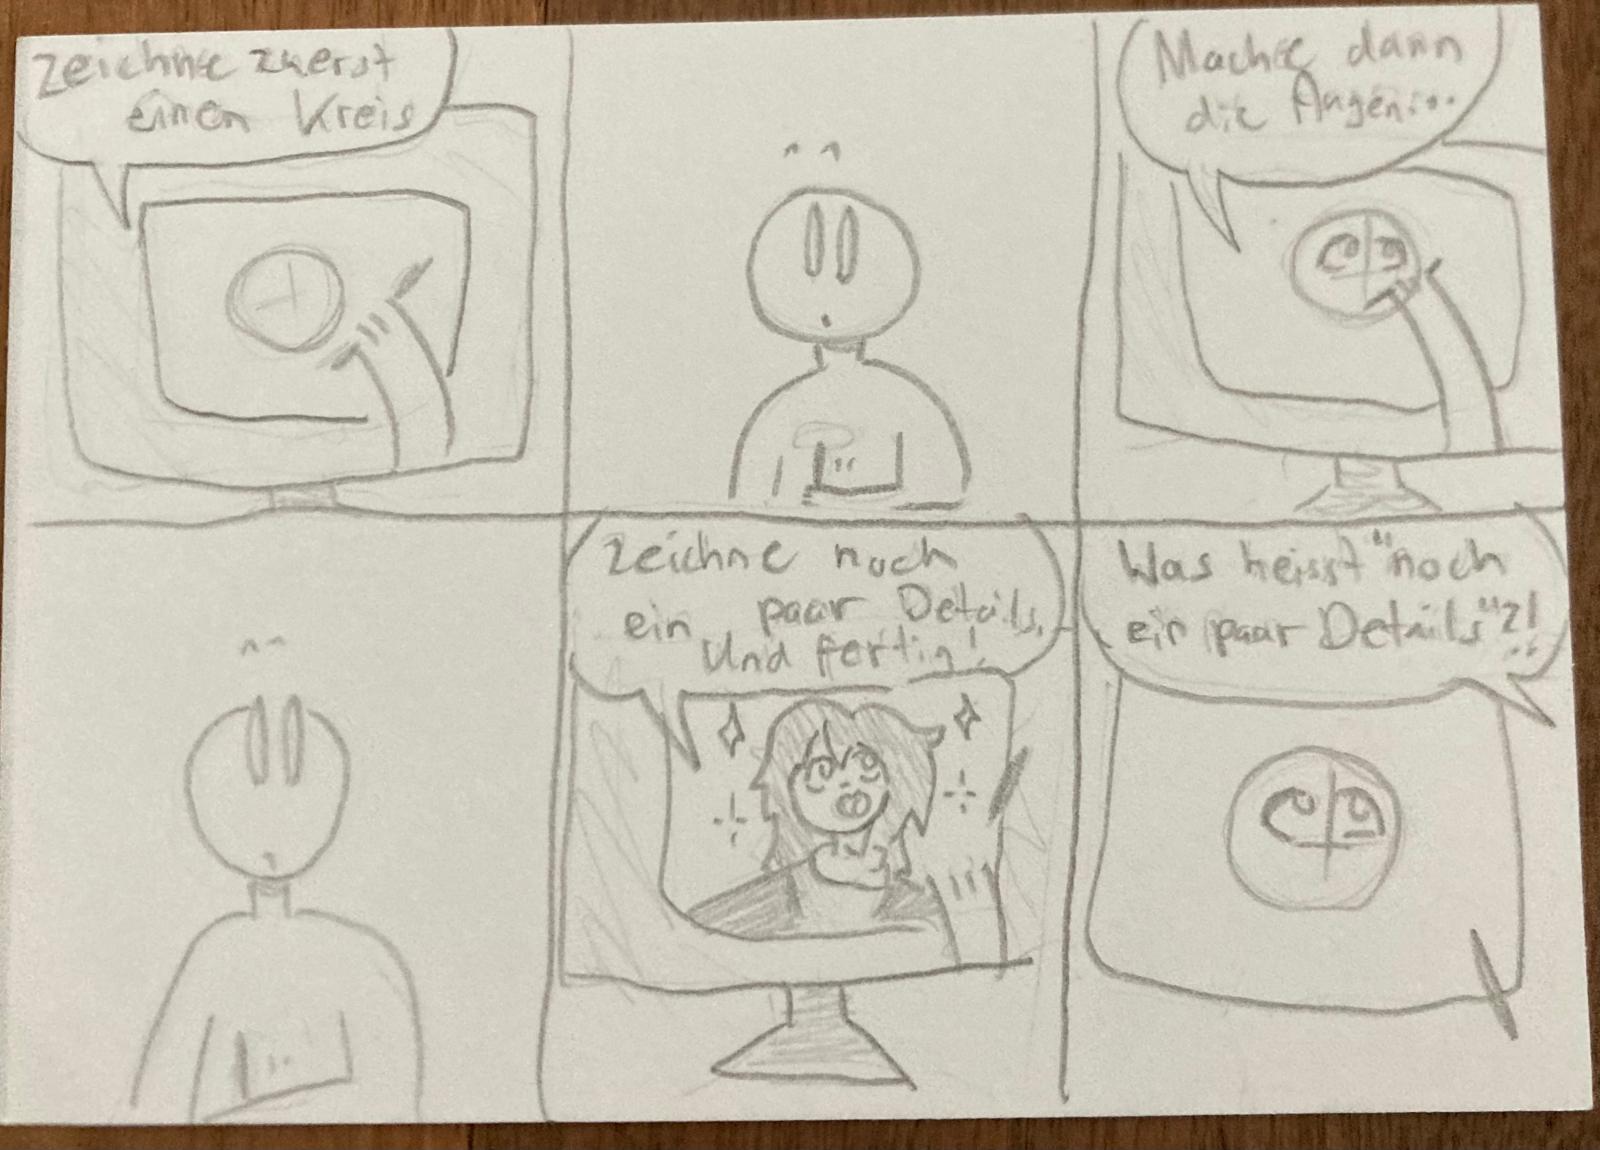 Zeichne zuerst
einen Kreis
Mache dann
die Augen...
Zeichne noch
ein paar Details.
Und fertig!
Was heisst "noch
ein paar Details"?!